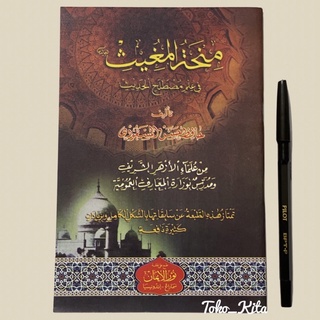 منحة المغيث
في علم مصطلح الحديث
تأليف
حافظ حسن المسعودي
من علماء الأزهر الشريف
ومدرس بوزارة المعارف العمومية
تمتاز هذه الطبعة عن سابقاتها بالشكل الكامل وبزيادات
كثيرة نافعة
PILOT
Toko_Kita